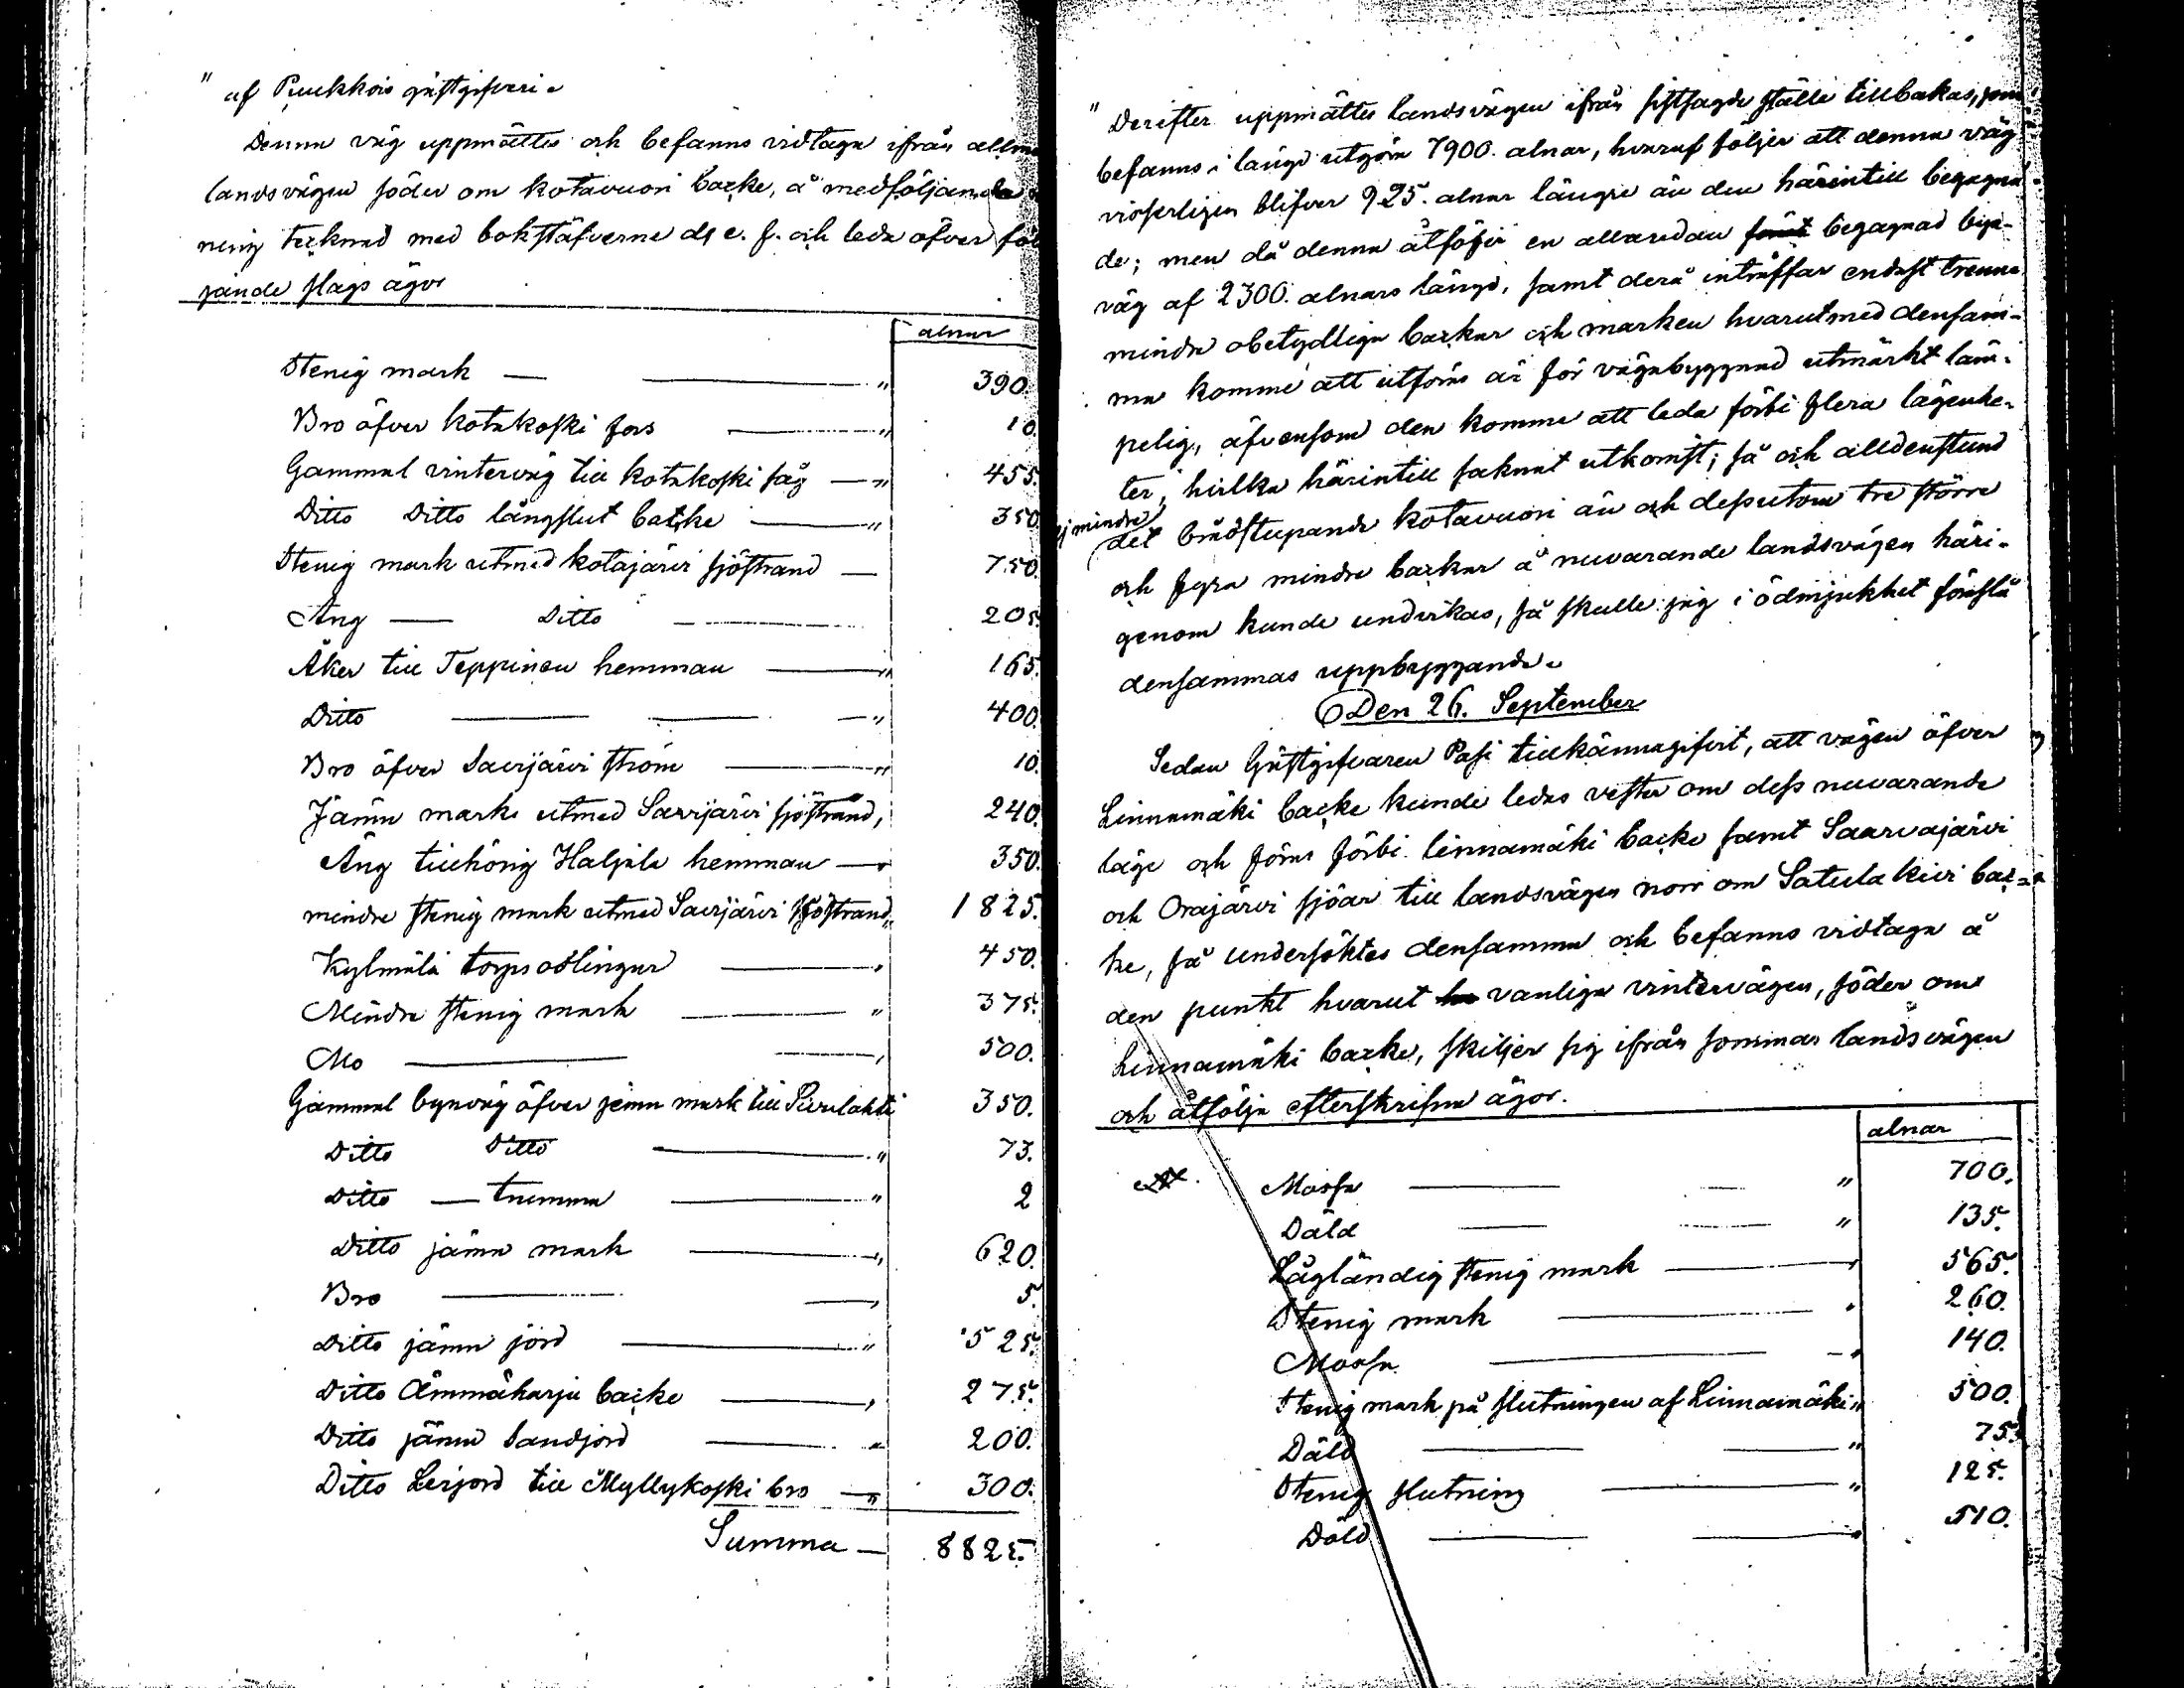 " af Puukkois gästgifveri.
Denna väg uppmättes och befanns vidtaga ifrån allm
landsvägen söder om Kotavuori backe, å medföljande
ning tecknad med bokstäfverne d, e. f. och leda öfver föl
jande slags ägor
alnar
Stenig mark — — " 390.
Bro öfver Kotakoski fors — " 10.
Gammal vinterväg till Kotakoski såg — " 455.
Ditto Ditto långslut backe — " 350.
Stenig mark utmed Kotajärvi sjöstrand — 750.
Äng — Ditto — 205.
Åker till Teppinen hemman — " 165.
Ditto — — — " 400.
Bro öfver Saarijärvi ström — " 10.
Jämn marke utmed Saarijärvi sjöstrand, 240.
Äng tillhörig Haljala hemman — 350.
mindre stenig mark utmed Saarijärvi sjöstrand " 1825.
Kylmälä torps odlingar — " 450.
Mindre stenig mark — " 375.
Mo — — " 500.
Gammal byaväg öfver jemn mark till Sivulahti 350.
Ditto Ditto — " 73.
Ditto — trumma — " 2
Ditto jämn mark — " 620.
Bro — — " 5.
Ditto jämn jord — " 525.
Ditto Ämmäharju backe — " 275.
Ditto jämn Sandjord — " 200.
Ditto Lerjord till Myllykoski bro — " 300.
Summa — 8825.
" Derefter uppmättes landsvägen ifrån sistsagde ställe tillbakas, som
befanns i längd utgöra 7900. alnar, hvaraf följer att denna väg
visserligen blifver 925. alnar längre än den härintill begagna-
de; men då denna åtföljer en allaredan förut begagnad bya-
väg af 2300. alnars längd, samt derå inträffar endast trenne
mindre obetydliga backar och marken hvarutmed densam-
ma komme att utföras är för vägabyggnad utmärkt läm-
pelig, äfvensom den komme att leda förbi flera lägenhe-
ter, hvilka härintill saknat utkomst; så och alldenstund
ej mindre
det brådstupande Kotavuori än och dessutom tre större
och fyra mindre backar å nuvarande landsvägen häri-
genom kunde undvikas, så skulle jag i ödmjukhet föreslå
densammas uppbyggande.
Den 26. September
Sedan Gästgifvaren Pasi tillkännagifvit, att vägen öfver
Linnamäki backe kunde ledas vester om dess nuvarande
läge och föras förbi linnamäki backe samt Saarvajärvi
och Orajärvi sjöar till landsvägen norr om Satula kivi bac-
ke, så undersöktes densamma och befanns vidtaga å
den punkt hvarut vanliga vintervägen, söder om
Linnamäki backe, skiljer sig ifrån sommar landsvägen
och åtfölja efterskrifna ägor.
alnar
Mossa — — " 700.
Däld — — " 135.
Lågländig stenig mark — " 565.
Stenig mark — " 260.
Mossa — — " 140.
Stenig mark på slutningen af Linnamäki " 500.
Däld — — " 75.
Stenig slutning — " 125.
Däld — — " 510.